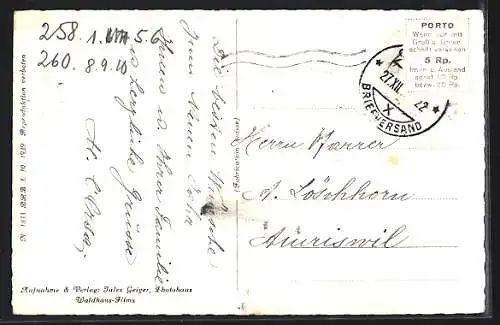 258. 1. 5 6
260. 8.9.10
Die besten Wünsche
zum Neuen Jahr
Ihnen u. Ihrer Familie
u. herzliche Grüsse
N 1811 BRB 3. 10. 1939 Reproduktion verboten
Aufnahme & Verlag: Jules Geiger, Photohaus
Waldhaus-Flims
(Fabrikation suisse)
PORTO
Wenn nur mit
Gruß u. Unter-
schrift versehen
5 Rp.
Im In- u. Ausland
sonst 10 Rp.
bezw. 20 Rp.
27.XII. 22
X
BRIEFVERSAND
Herrn Pfarrer
A. Löschhorn
Amriswil